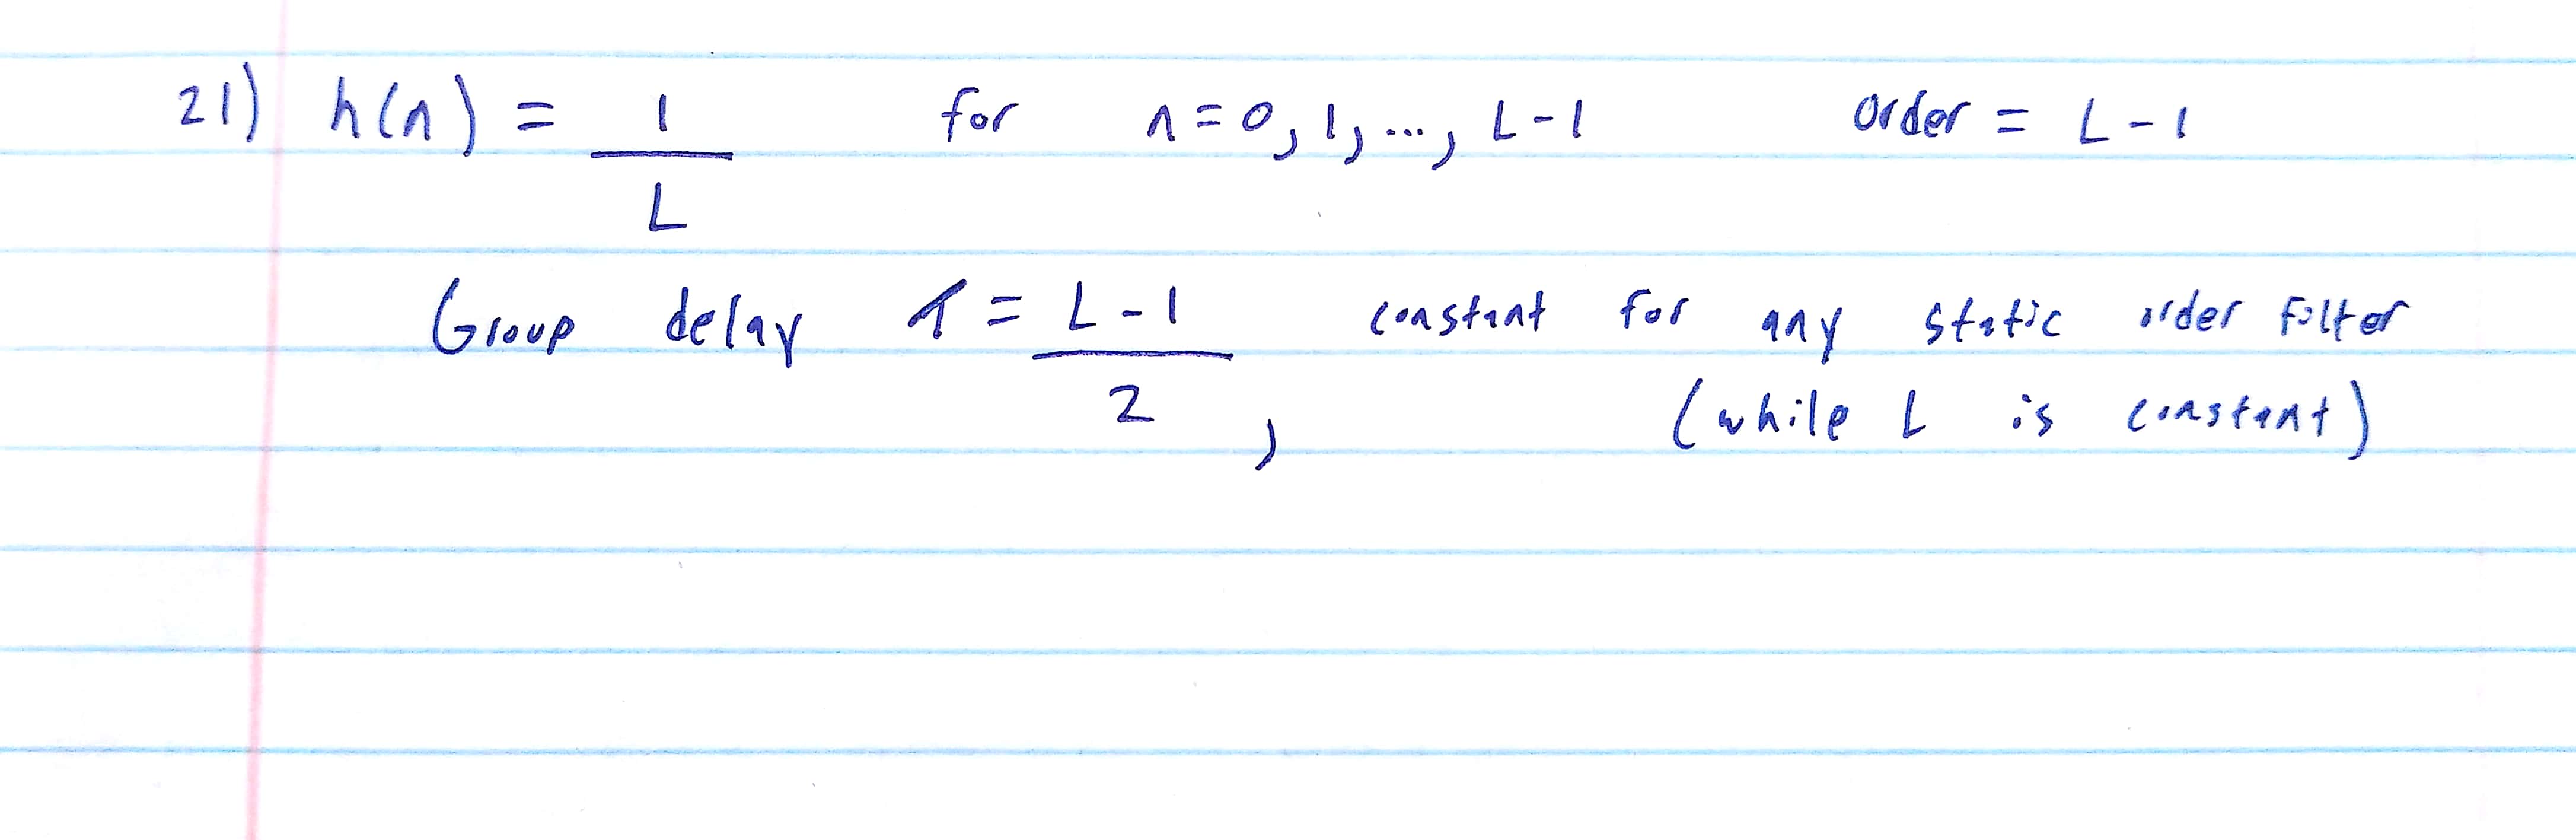 21) h(n) = 1/L for n = 0, 1, ..., L-1 order = L-1
Group delay τ = (L-1)/2, constant for any static order filter
(while L is constant)